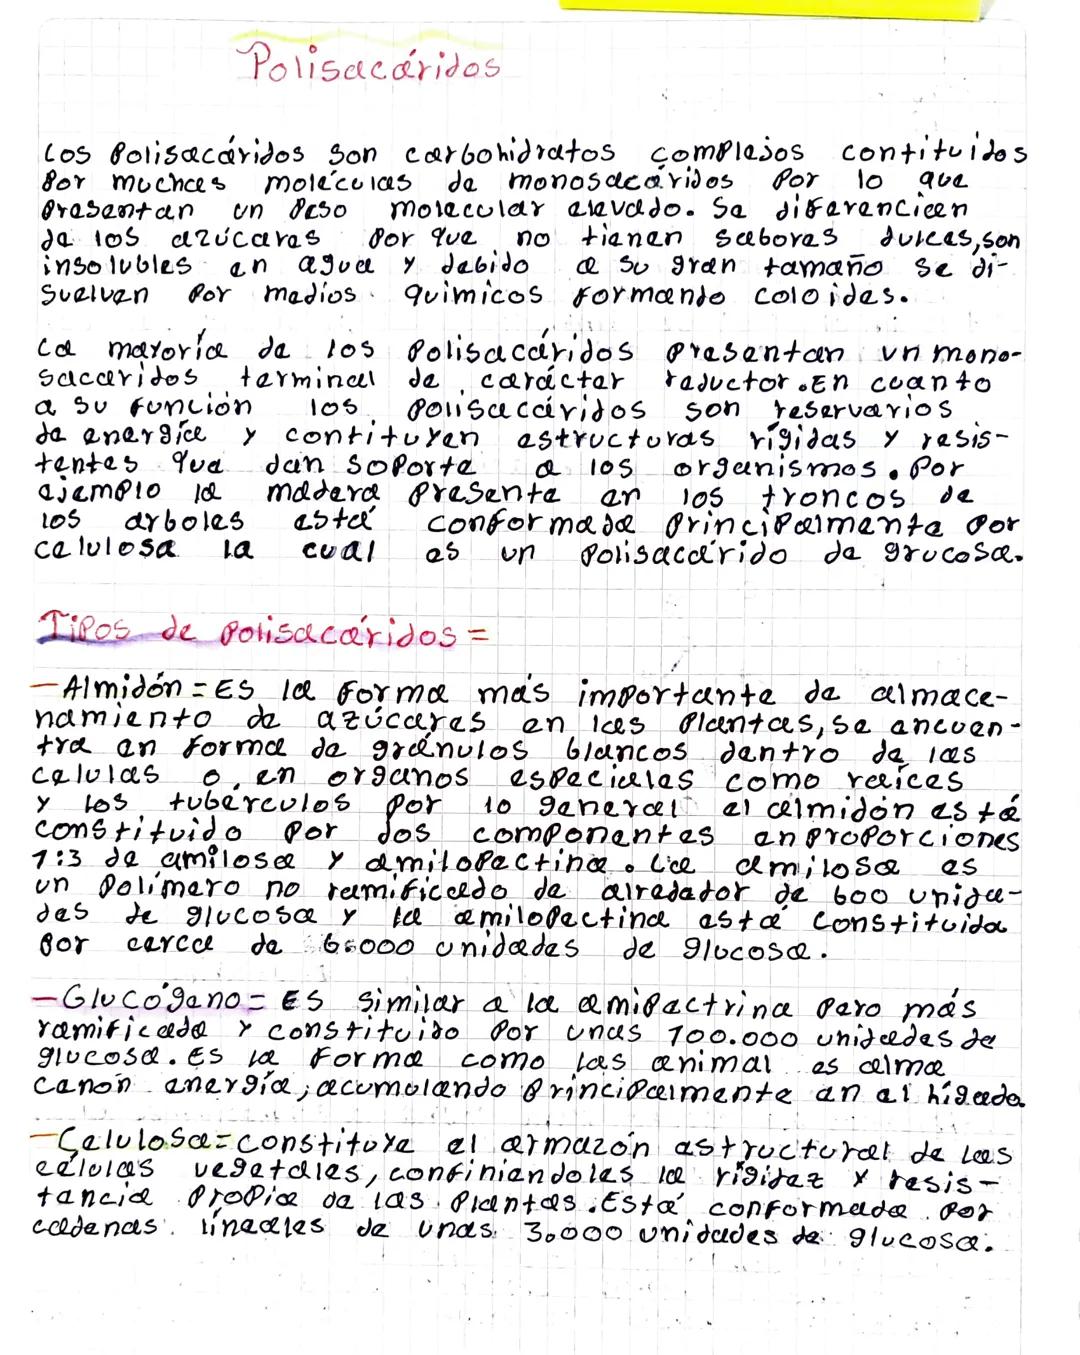 Polisacáridos
Los Polisacáridos son carbohidratos complejos contituidos
por muchas moléculas de monosacáridos por lo que
presentan un peso molecular elevado. Se diferencian
de los azúcares por que no tienen sabores dulces, son
insolubles en agua y debido a su gran tamaño se di-
suelven por medios quimicos formando coloides.
La mayoría de los polisacáridos presentan un mono-
sacaridos terminal de carácter reductor. En cuanto
a su función los polisacáridos son reservarios
de energíe y contituyen estructuras rígidas y resis-
tentes que dan soporte a los organismos. Por
ejemplo la madera presente en los troncos de
los arboles está conformada principalmente por
celulosa la cual es un polisacárido de grucosa.
Tipos de polisacáridos =
- Almidón = Es la forma más importante de almace-
namiento de azúcares en las plantas, se encuen-
tra en forma de gránulos blancos dentro de las
celulas o, en organos especieles como raíces
y los tubérculos por lo general el almidón está
constituido por dos componentes en proporciones
1:3 de amilosa y amilopectina. La amilosa es
un polímero no ramificado de alrededor de 600 unida-
des de glucosa y la amilopectina está constituida
por cerca de 6.000 unidades de glucosa.
- Glucógeno = Es similar a la amipactrina pero más
ramificada y constituido por unas 100.000 unidades de
glucosa. Es la forma como las animal es alma
canon energía, acumulando principalmente en el hígado
- Celulosa = constituye el armazón estructural de las
células vegetales, confiniendoles la rigidez y resis-
tencia propia de las plantas. Está conformada por
cadenas lineales de unas 3.000 unidades de glucosa.